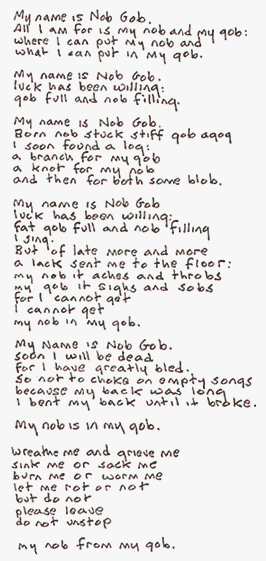 My name is Nob Gob.
All I am for is my nob and my gob:
where I can put my nob and
what I can put in my gob.

My name is Nob Gob.
luck has been willing:
gob full and nob filling.

My name is Nob Gob.
Born nob stuck stiff gob agog
I soon found a log:
a branch for my gob
a knot for my nob
and then for both some blob.

My name is Nob Gob
luck has been willing:
fat gob full and nob filling
I sing.
But of late more and more
a lack sent me to the floor:
my nob it aches and throbs
my gob it sighs and sobs
for I cannot get
I cannot get
my nob in my gob.

My Name is Nob Gob.
soon I will be dead
for I have greatly bled.
So not to choke on empty songs
because my back was long
I bent my back until it broke.

My nob is in my gob.

wreathe me and grieve me
sink me or sack me
burn me or worm me
let me rot or not
but do not
please leave
do not unstop

my nob from my gob.